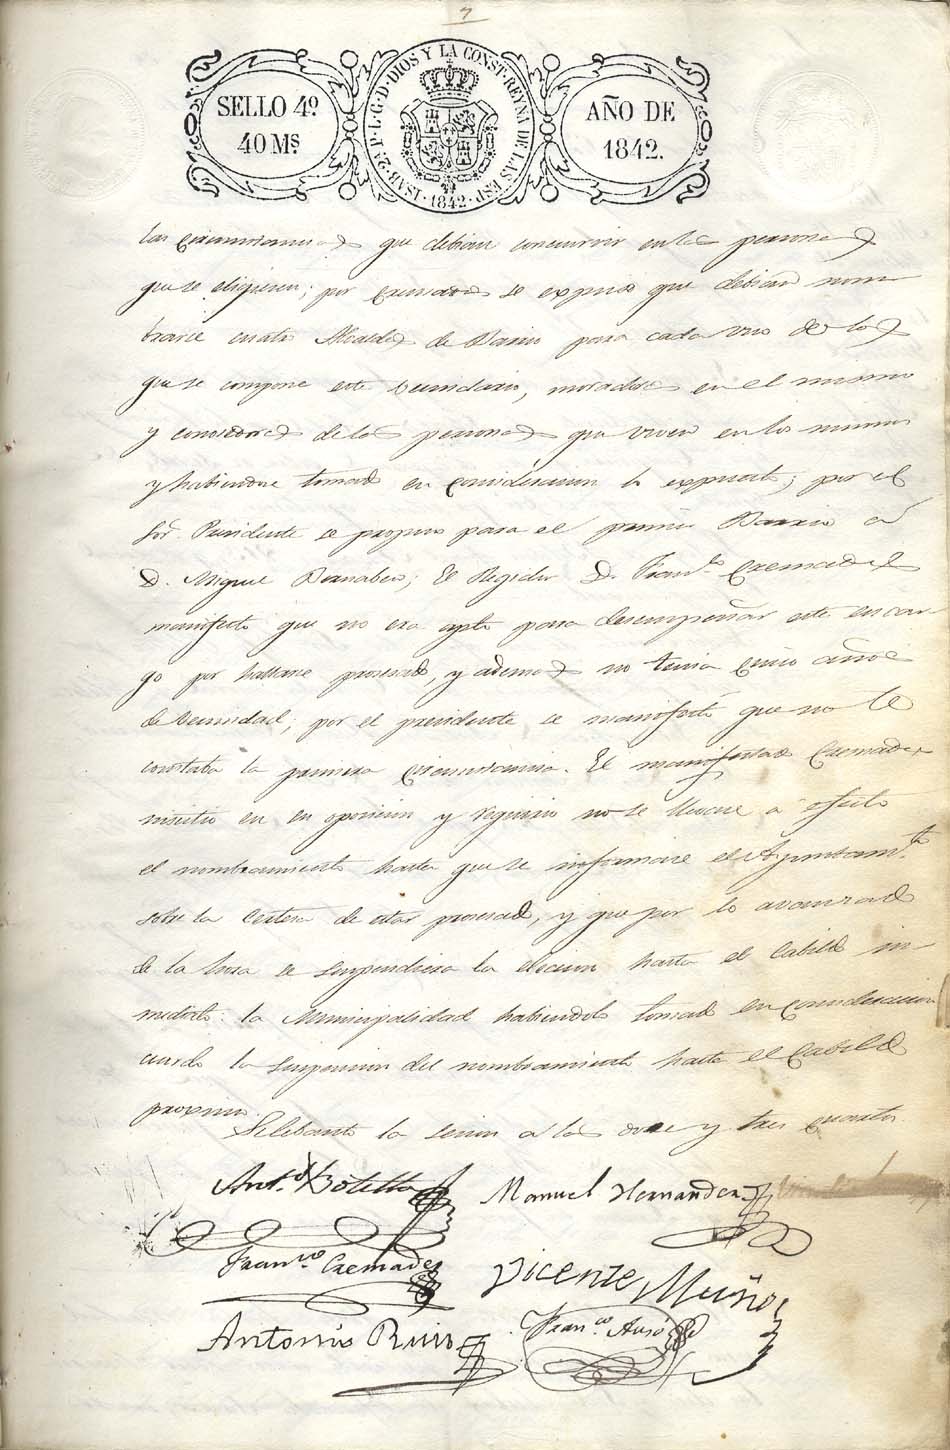 7
SELLO 4º.
40 Mˢ
ISAB. 2ª P. L. G. D. DIOS Y LA CONST. REYNA DE LAS ESP.
1842
AÑO DE
1842.
las circunstancias que debian concurrir en las personas
que se eligiesen; por Cremades se expuso que debian nom
brarse cuatro Alcaldes de Barrio para cada uno de los
que se compone este vecindario, moradores en el mismo
y conocedores de las personas que viven en los mismos
y habiendose tomado en consideracion lo expuesto; por el
Sor. Presidente se propuso para el primer Barrio a
D. Miguel Bernabeu; El Regidor D. Franco. Cremades
manifesto que no era apto para desempeñar este encar
go por hallarse procesado, y ademas no tenia cinco años
de vecindad; por el presidente se manifestó que no le
constaba la primera circunstancia. El manifestado Cremades
insistio en su oposicion y requirio no se llevase a efecto
el nombramiento hasta que se informase el Ayuntamto.
sobre la certeza de estar procesado, y que por lo avanzado
de la hora se suspendiera la eleccion hasta el Cabildo in
mediato: la Municipalidad habiendolo tomado en consideracion
acordo la suspension del nombramiento hasta el Cabildo
proximo.
Se lebantó la sesion a las doce y tres cuartos
Anto. Botella Manuel Hernandez
Franco. Cremades Vicente Muños
Antonio Ruiz Franco. Ausó